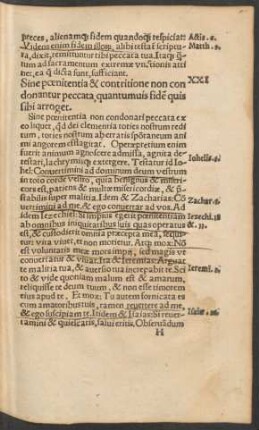 preces, alienamq; fidem quandoq; respiciat:
Actis. 2.
Videm enim fidem illoru, ubi testat scriptu
Matth. 9.
ra, dixit, remittuntur tibi peccata tua. Itaq; q̃
tum ad sacramentum extremæ unctionis atti
net, ea q̃ dicta sunt, sufficiant.
XXI
Sine pœnitentia & contritione non con
donantur peccata, quantumuis fidẽ quis
sibi arroget.
Sine pœnitentia non condonari peccata ex
eo liquet, q̃ d dei clementia toties nostrum redi
tum, toties nostram aberratis spõtaneum ani
mi angorem efflagitat. Operæpretium enim
fuerit animum agnoscere admissa, agnita de
testari, lachrymisq; extergere. Testatur id Io-
Iohelis. 2.
hel: Conuertimini ad dominum deum vestrum
in toto corde vestro, quia benignus & miseri-
cors est, patiens & multæ misericordiæ, & p̃-
stabilis super malitia. Idem & Zacharias: Cõ
Zachar. 1.
uertimini ad me, & ego conuertar ad vos. Ad
idem Iezechiel: Si impius egerit pœnitentiam
Iezechi. 18
ab omnibus iniquitatibus suis quas operatus
& . 33.
est, & custodierit omnia præcepta mea,
tur: vita viuet, et non morietur. Atq; mox: Nõ
est voluntatis meæ mors impij, sed magis vt
conuertatur & viuat. Ita & Ieremias: Arguat
te malitia tua, & auersio tua increpabit te. Sci
Ieremi. 2.
to & vide quoniam malum est & amarum,
reliquisse te deum tuum, & non esse timorem
eius apud te. Et mox: Tu autem fornicata es
cum amatoribus tuis, tamen reuertere ad me,
& ego suscipiam te. Itidem & Isaias: Si reuer-
tamini & quiescatis, salui eritis. Obsecundum
H